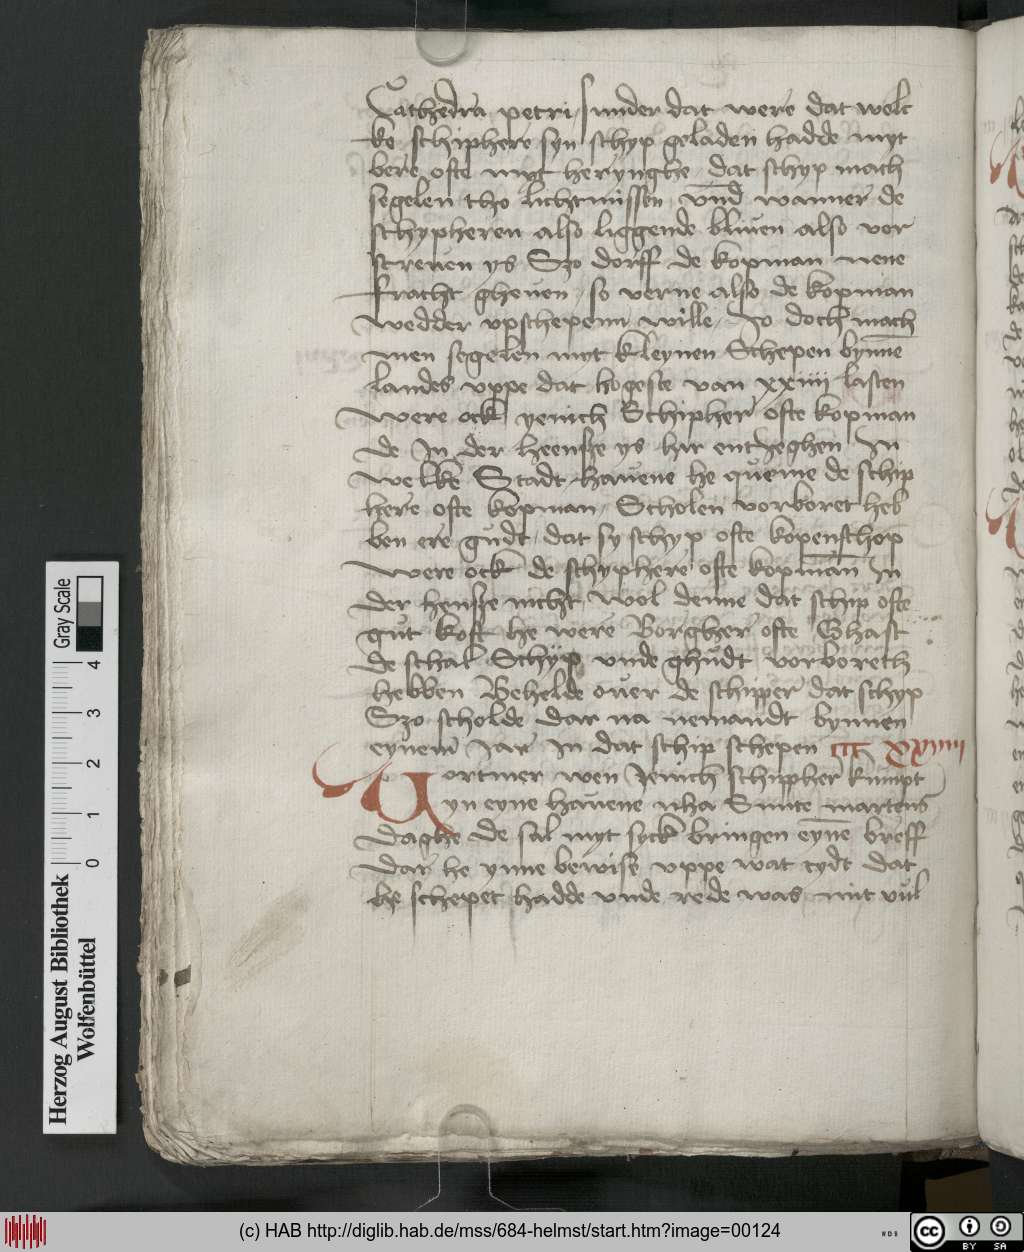 Cathedra petri sunder dat were dat welc
ke schiphere syn schyp geladen hadde myt
bere ofte myt herynghe dat schyp mach
segelen tho lichtmissen vnd wanner de
schypheren also liggende bliuen also vor
screuen ys Szo dorff de kopman nene
fracht gheuen so verne also de kopman
wedder vpschepenn wille Jo doch mach
men segelen myt kleynen Schepen bynne
landes vppe dat hogeste van xxiiij lasten
were ock yenich Schipher ofte kopman
de In der heensze ys hir entyeghen In
welke Stadt hauene he queme de schip
here ofte kopman Scholen vorboret heb
ben ere gudt dat sy schyp ofte kopenschop
were ock de schyphere ofte kopman In
der hensze nicht wol denne dat schip ofte
gut koft he were Borgher ofte Ghast
de schal Schyp vnde ghudt vorboreth
hebben Behelde ouer de schipper dat schyp
Szo scholde dar na nemandt bynnen
eynem Jar In dat schip schepen xxiiij
Vortmer wen Jenich schippher kumpt
yn eyne hauene nha Sunte martens
daghe de sal myt syck bringen eyne breff
dar he ynne bewise vppe wat tydt dat
he schepet hadde vnde rede was mit vul
Gray Scale
0 1 2 3 4
Herzog August Bibliothek
Wolfenbüttel
(c) HAB http://diglib.hab.de/mss/684-helmst/start.htm?image=00124
WDB
cc BY SA